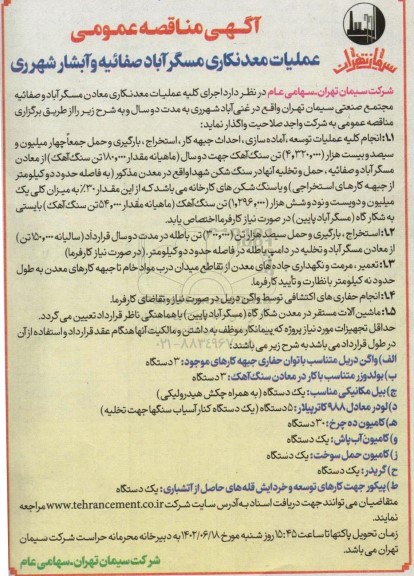 آگهی مناقصه عمومی
عملیات معدنکاری مسگرآباد صفائیه و آبشار شهرری
سیمان تهران
شرکت سیمان تهران ـ سهامی عام در نظر دارد اجرای کلیه عملیات معدنکاری معادن مسگرآباد و صفائیه
مجتمع صنعتی سیمان تهران واقع در غنی‌آباد شهرری به مدت دو سال و به شرح زیر را از طریق برگزاری
مناقصه عمومی به شرکت واجد صلاحیت واگذار نماید:
۱.۱: انجام کلیه عملیات توسعه، آماده‌سازی، احداث جبهه کار، استخراج، بارگیری و حمل جمعاً چهار میلیون و
سیصد و بیست هزار (۴٫۳۲۰٫۰۰۰) تن سنگ‌آهک جهت دو سال (ماهیانه مقدار ۱۸۰٫۰۰۰ تن سنگ‌آهک) از معادن
مسگرآباد و صفائیه، حمل و تخلیه آنها در سنگ شکن شهدا واقع در معدن مذکور (به فاصله حدود دو کیلومتر
از جبهه کارهای استخراجی) و یا سنگ شکن های کارخانه می باشد که از این مقدار ۳۰٪ به میزان کلی یک
میلیون و دویست و نود و شش هزار (۱٫۲۹۶٫۰۰۰) تن سنگ آهک (ماهیانه مقدار ۵۴٫۰۰۰ تن سنگ‌آهک) بایستی
به شکار گاه (مسگرآباد پایین) در صورت نیاز کارفرما اختصاص یابد.
۱.۲: استخراج، بارگیری و حمل سیصد هزار تن (۳۰۰٫۰۰۰) تن باطله در مدت دو سال قرارداد (سالیانه ۱۵۰٫۰۰۰ تن)
از معادن مسگرآباد و تخلیه در دامپ باطله در فاصله حدود دو کیلومتر. (در صورت نیاز کارفرما)
۱.۳: تعمیر، مرمت و نگهداری جاده‌های معدن از تقاطع میدان درب مواد خام تا جبهه کارهای معدن به طول
حدود نه کیلومتر با نظارت و تأیید کارفرما.
۱.۴: انجام حفاری های اکتشافی توسط واگن دریل در صورت نیاز و تقاضای کارفرما.
۱.۵: ماشین آلات مستقر در معدن شکار گاه (مسگرآباد پایین) با هماهنگی ناظر قرارداد تعیین می گردد.
حداقل تجهیزات مورد نیاز پروژه که پیمانکار موظف به داشتن و مالکیت آنها هنگام عقد قرارداد و استفاده از آن
در طول قرارداد می باشد به شرح زیر می باشند:
الف) واگن دریل متناسب با توان حفاری جبهه کارهای موجود: ۳ دستگاه
ب) بولدوزر متناسب با کار در معادن سنگ‌آهک: ۳ دستگاه
ج) بیل مکانیکی مناسب: یک دستگاه (به همراه چکش هیدرولیکی)
د) لودر معادل ۹۸۸ کاترپیلار: ۵ دستگاه (یک دستگاه کنار آسیاب سنگها جهت تخلیه)
ه) کامیون ده چرخ: ۳۰ دستگاه
و) کامیون آب پاش: یک دستگاه
ز) کامیون حمل سوخت: یک دستگاه
ح) گریدر: یک دستگاه
ط) پیکور جهت کارهای توسعه و خردایش قله‌های حاصل از آتشباری: یک دستگاه
متقاضیان می توانند جهت دریافت اسناد به آدرس سایت شرکت www.tehrancement.co.ir مراجعه
نمایند.
زمان تحویل پاکتها تا ساعت ۱۵:۴۵ روز شنبه مورخ ۱۴۰۲/۰۶/۱۸ به دبیرخانه محرمانه حراست شرکت سیمان
تهران می باشد.
شرکت سیمان تهران ـ سهامی عام